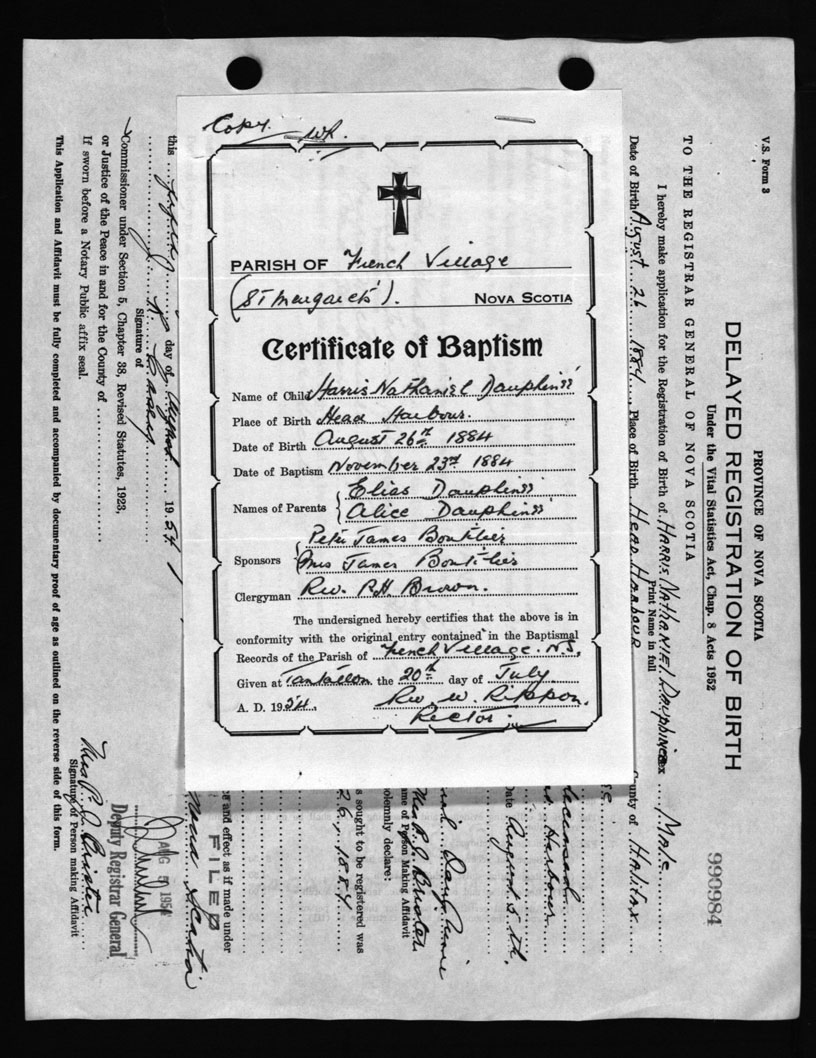 Copy. WR.
PARISH OF French Village
(St Margarets'). NOVA SCOTIA
Certificate of Baptism
Name of Child Harris Nathaniel Dauphine
Place of Birth Head Harbour.
Date of Birth August 26th 1884
Date of Baptism November 23rd 1884
Names of Parents { Elias Dauphine
Alice Dauphine
Sponsors { Peter James Boutilier
Mrs James Boutilier
Clergyman Rev. P.H. Brown.
The undersigned hereby certifies that the above is in
conformity with the original entry contained in the Baptismal
Records of the Parish of French Village. N.S.
Given at Tantallon the 20th day of July
A. D. 1954. Rev. W. Rippon.
Rector.
V.S. Form 3
PROVINCE OF NOVA SCOTIA
DELAYED REGISTRATION OF BIRTH
990984
Under the Vital Statistics Act, Chap. 8 Acts 1952
TO THE REGISTRAR GENERAL OF NOVA SCOTIA
I hereby make application for the Registration of Birth of HARRIS NATHANIEL Dauphinee Sex Male
Print Name in full
Date of Birth August 26 1884 Place of Birth Head Harbour County of Halifax
deceased
Harbour
August 5th,
Dauphinee
Name of Person Making Affidavit
solemnly declare:
s sought to be registered was
26, 1884
and effect as if made under
FILED
Nova Scotia
AUG 5 1954
Deputy Registrar General
this fifth day of August 1954
Signature of
Commissioner under Section 5, Chapter 38, Revised Statutes, 1923,
or Justice of the Peace in and for the County of
If sworn before a Notary Public affix seal.
Signature of Person making Affidavit
This Application and Affidavit must be fully completed and accompanied by documentary proof of age as outlined on the reverse side of this form.